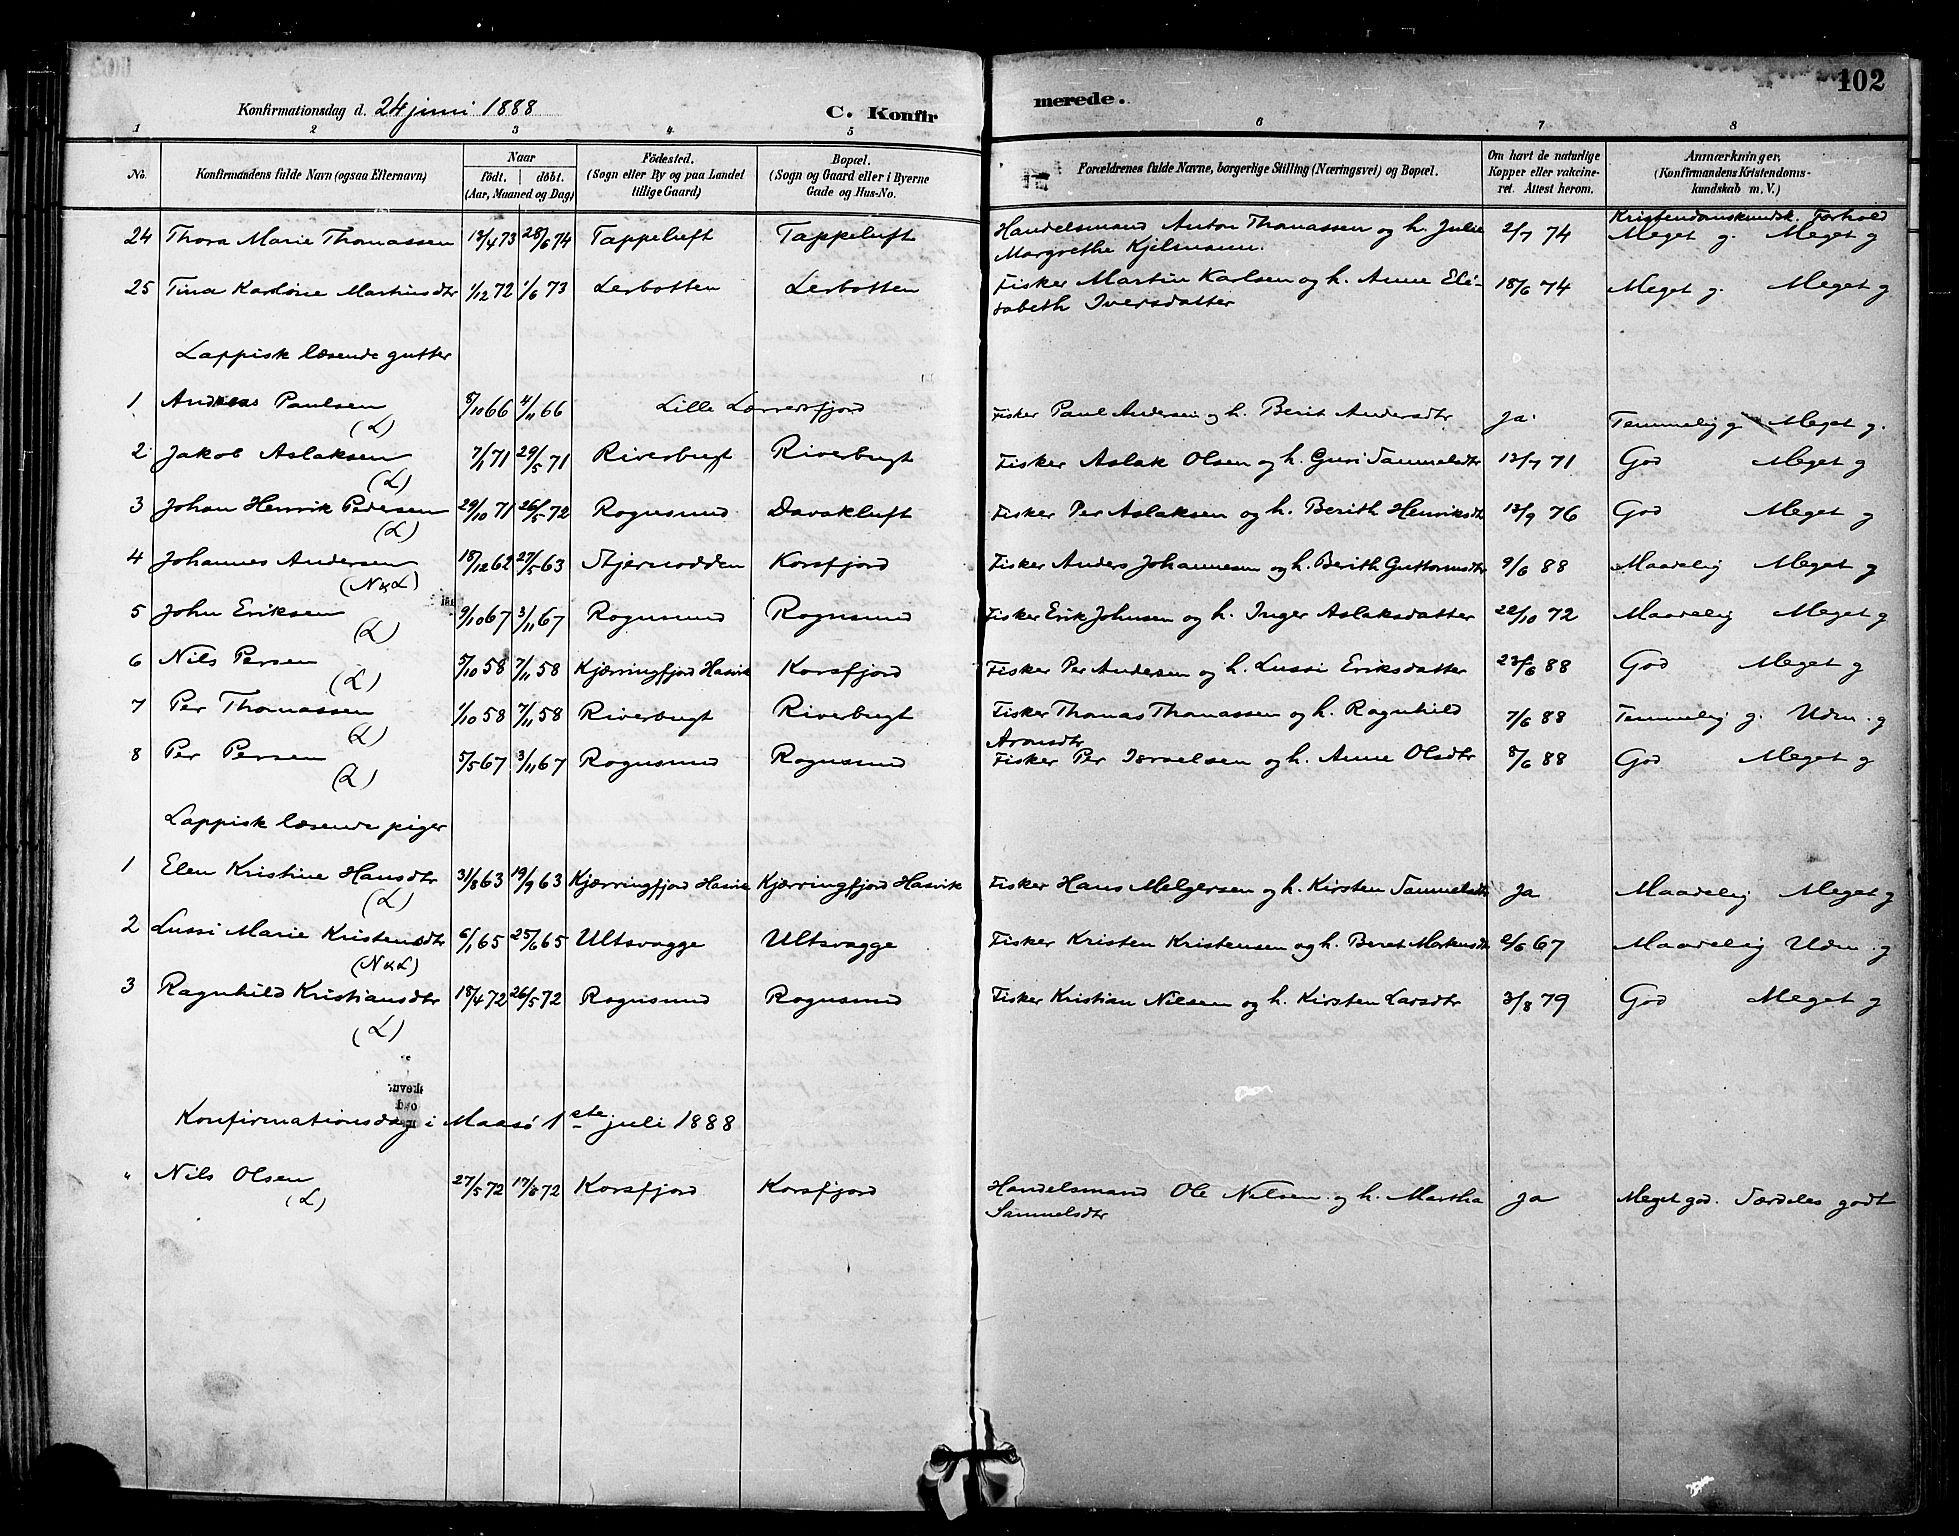 102
Konfirmationsdag d. 24 juni 1888 C. Konfir merede.
1 2 3 4 5 6 7 8
No. Konfirmandens fulde Navn (ogsaa Efternavn) Naar födt. döbt. (Aar, Maaned og Dag) Födested. (Sogn eller By og paa Landet tillige Gaard) Bopæl. (Sogn og Gaard eller i Byerne Gade og Hus-No. Forældrenes fulde Navne, borgerlige Stilling (Næringsvei) og Bopæl. Om havt de naturlige Kopper eller vakcineret. Attest herom. Anmærkninger. (Konfirmandens Kristendomskundskab m. V.)
Kristendomskundsk. Forhold
24 Thora Marie Thomassen 13/4 73 28/6 74 Tappeluft Tappeluft Handelsmand Anton Thomassen og h. Julie 2/7 74 Meget g. Meget g
Margrethe Kjelmann.
25 Tina Karoline Martinsdtr 1/12 72 1/6 73 Lerbotten Lerbotten Fisker Martin Karlsen og h. Anne Eli- 18/6 74 Meget g. Meget g
sabeth Iversdatter
Lappisk læsende gutter
1 Andreas Paulsen 8/10 66 4/11 66 Lille Lerresfjord Fisker Paul Andersen og h. Berit Andersdtr Ja. Temmelig g Meget g.
(L)
2 Jakob Aslaksen 7/1 71 29/5 71 Riverbugt Riverbugt Fisker Aslak Olsen og h. Guri Samuelsdtr 13/7 71 God Meget g
(L)
3 Johan Henrik Pedersen 29/10 71 26/5 72 Rognsund Davakluft Fisker Per Aslaksen og h. Berith Henriksdtr 13/9 76 God Meget g
(L)
4 Johannes Andersen 18/12 62 27/5 63 Stjernodden Korsfjord Fisker Anders Johannesen og h. Berith Guttormsdtr 9/6 88 Maadelig Meget g
(N & L)
5 John Eriksen 9/10 67 3/11 67 Rognsund Rognsund Fisker Erik Johnsen og h. Inger Aslaksdatter 22/10 72 Maadelig Meget g
(L)
6 Nils Persen 5/10 58 7/11 58 Kjærringfjord Hasvik Korsfjord Fisker Per Andersen og h. Lussi Eriksdatter 23/6 88 God Meget g
(L)
7 Per Thomassen 1/10 58 7/11 58 Riverbugt Riverbugt Fisker Thomas Thomassen og h. Ragnhild 7/6 88 Temmelig g. Udm. g
(L) Aronsdtr
8 Per Persen 5/5 67 3/11 67 Rognsund Rognsund Fisker Per Israelsen og h. Anne Olsdtr 8/6 88 God Meget g
(L)
Lappisk læsende piger
1 Elen Kristine Hansdtr 31/8 63 19/9 63 Kjærringfjord Hasvik Kjærringfjord Hasvik Fisker Hans Melgersen og h. Kirsten Samuelsdtr Ja Maadelig Meget g
(L)
2 Lussi Marie Kristensdtr 6/1 65 25/6 65 Ultsvagge Ultsvagge Fisker Kristen Kristensen og h. Beret Mortensdtr 2/6 67 Maadelig Udm. g
(N & L)
3 Ragnhild Kristiansdtr 18/4 72 26/5 72 Rognsund Rognsund Fisker Kristian Nilsen og h. Kirsten Larsdtr 3/8 79 God Meget g
(L)
Konfirmationsdag i Maasö 1ste juli 1888
" Nils Olsen 27/5 72 17/8 72 Korsfjord Korsfjord Handelsmand Ole Nilsen og h. Martha Ja Meget god. Særdeles godt
(L) Samuelsdtr